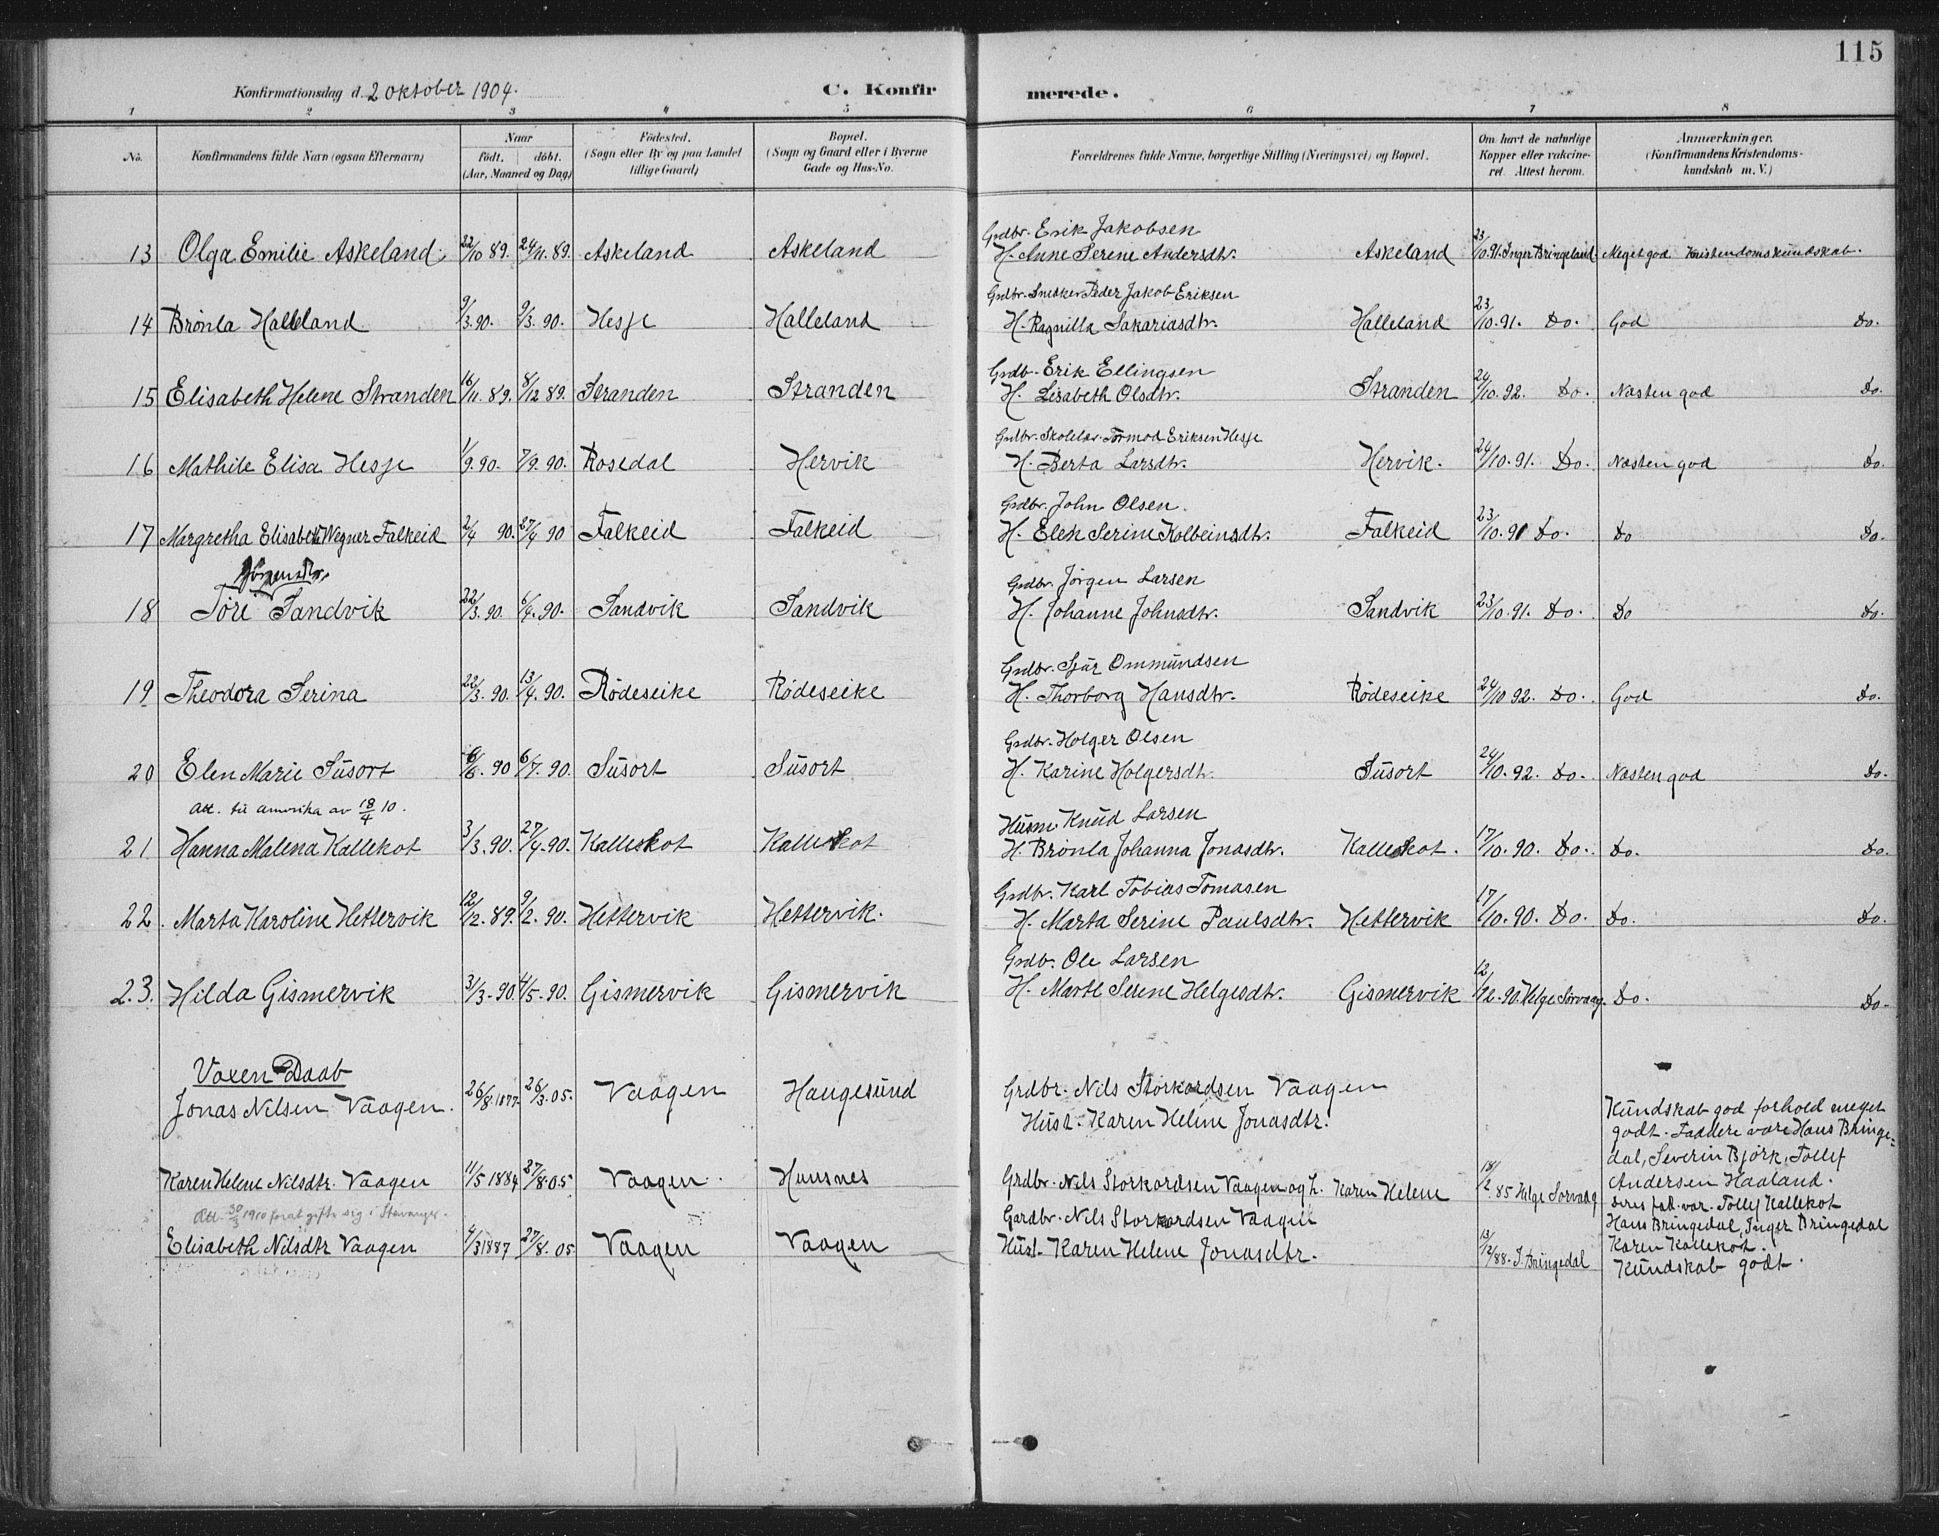 115
Konfirmationsdag d. 2 oktober 1904.
C. Konfirmerede.
1 2 3 4 5 6 7 8
No. Konfirmandens fulde Navn (ogsaa Efternavn) Naar födt. döbt. (Aar, Maaned og Dag) Födested. (Sogn eller By og paa Landet tillige Gaard) Bopæl. (Sogn og Gaard eller i Byerne Gade og Hus-No. Forældrenes fulde Navne, borgerlige Stilling (Næringsvei) og Bopæl. Om havt de naturlige Kopper eller vakcineret. Attest herom. Anmærkninger. (Konfirmandens Kristendomskundskab m. V.)
Grdbr. Erik Jakobsen
13 Olga Emilie Askeland 22/10 89. 24/11. 89. Askeland Askeland H. Anne Serene Andersdtr. Askeland 23/10. 91. Inger Bringeland. Meget god Kristendomskundskab.
Grdbr. Snedker Peder Jakob Eriksen
14 Brønla Halleland 9/3. 90. 9/3. 90. Hesje Halleland H. Ragnilla Sakariasdtr. Halleland 23/10. 91. Do. God Do.
Grdb. Erik Ellingsen
15 Elisabeth Helene Stranden 16/11. 89. 8/12 89. Stranden Stranden H. Lisabeth Olsdtr. Stranden 24/10. 92. Do. Næsten god Do.
Grdbr. Skolelær. Tormod Eriksen Hesje
16 Mathile Elisa Hesje 1/9. 90. 7/9. 90. Rosedal Hervik H. Berta Larsdtr. Hervik. 24/10. 91. Do. Næsten god Do.
Grdbr. John Olsen.
17 Margretha Elisabeth Wegner Falkeid 2/4 90. 27/4 90 Falkeid Falkeid H. Elen Serine Kolbeinsdtr. Falkeid 23/10. 91 Do. Do Do.
Jörgensdtr.
Grdbr. Jørgen Larsen
18 Tøri Sandvik 22/3. 90. 6/4. 90. Sandvik Sandvik H. Johanne Johnsdtr. Sandvik 23/10. 91. Do. Do Do.
Grdbr. Sjur Ommundsen
19 Theodora Serina 22/3. 90. 13/4. 90. Rødeseike Rødeseike H. Thorborg Hansdtr. Rødeseike 24/10 92. Do. God Do.
Grdbr. Holger Olsen
20 Elen Marie Susort 6/6. 90 6/7. 90. Susort Susort H. Karine Holgersdtr. Susort 24/10. 92. Do. Næsten god Do.
Att. til Amerika av 18/4 10.
Husm. Knud Larsen
21 Hanna Malena Kallekot 3/3. 90. 27/4. 90. Kallekot Kallekot H. Brønla Johanna Jonasdtr. Kallekot. 17/10. 90. Do. Do. Do.
Grdbr. Karl Tobias Tomasen
22. Marta Karoline Hettervik 12/12. 89. 9/2. 90. Hettervik Hettervik. H. Marta Serine Paulsdtr. Hettervik 17/10. 90. Do. Do. Do.
Grdb. Ole Larsen
23. Hilda Gismervik 3/3. 90. 4/5. 90. Gismervik Gismervik H. Marte Serene Helgesdtr. Gismervik 12/12. 90. Helge Sørvaag. Do. Do.
Voxen Daab
Jonas Nilsen Vaagen. 26/8. 1877. 26/3. 05. Vaagen Haugesund Grdbr. Nils Storkordsen Vaagen
Hust. Karen Helene Jonasdtr.
Kundskab god forhold meget
godt. Faddere vare Hans Bringedal,
Severin Bjørk, Tollef
Andersen Haaland.
Karen Helene Nilsdtr. Vaagen 11/5 1884 27/8. 05. Vaagen. Huusnes Grdbr. Nils Storkordsen Vaagen og h. Karen Helene 18/2. 85 Helge Sørvaag
Att. 30/3 1910 forat gifte sig i Stavanger.
Tollef Kallekot
Hans Bringedal, Inger Bringedal
Karen Kallekot.
Gardbr. Nils Storkordsen Vaagen
Elisabeth Nilsdtr Vaagen 4/3 1887 27/8. 05 Vaagen Vaagen Hust. Karen Helene Jonasdtr. 13/12/88. I. Bringedal Kundskab godt.